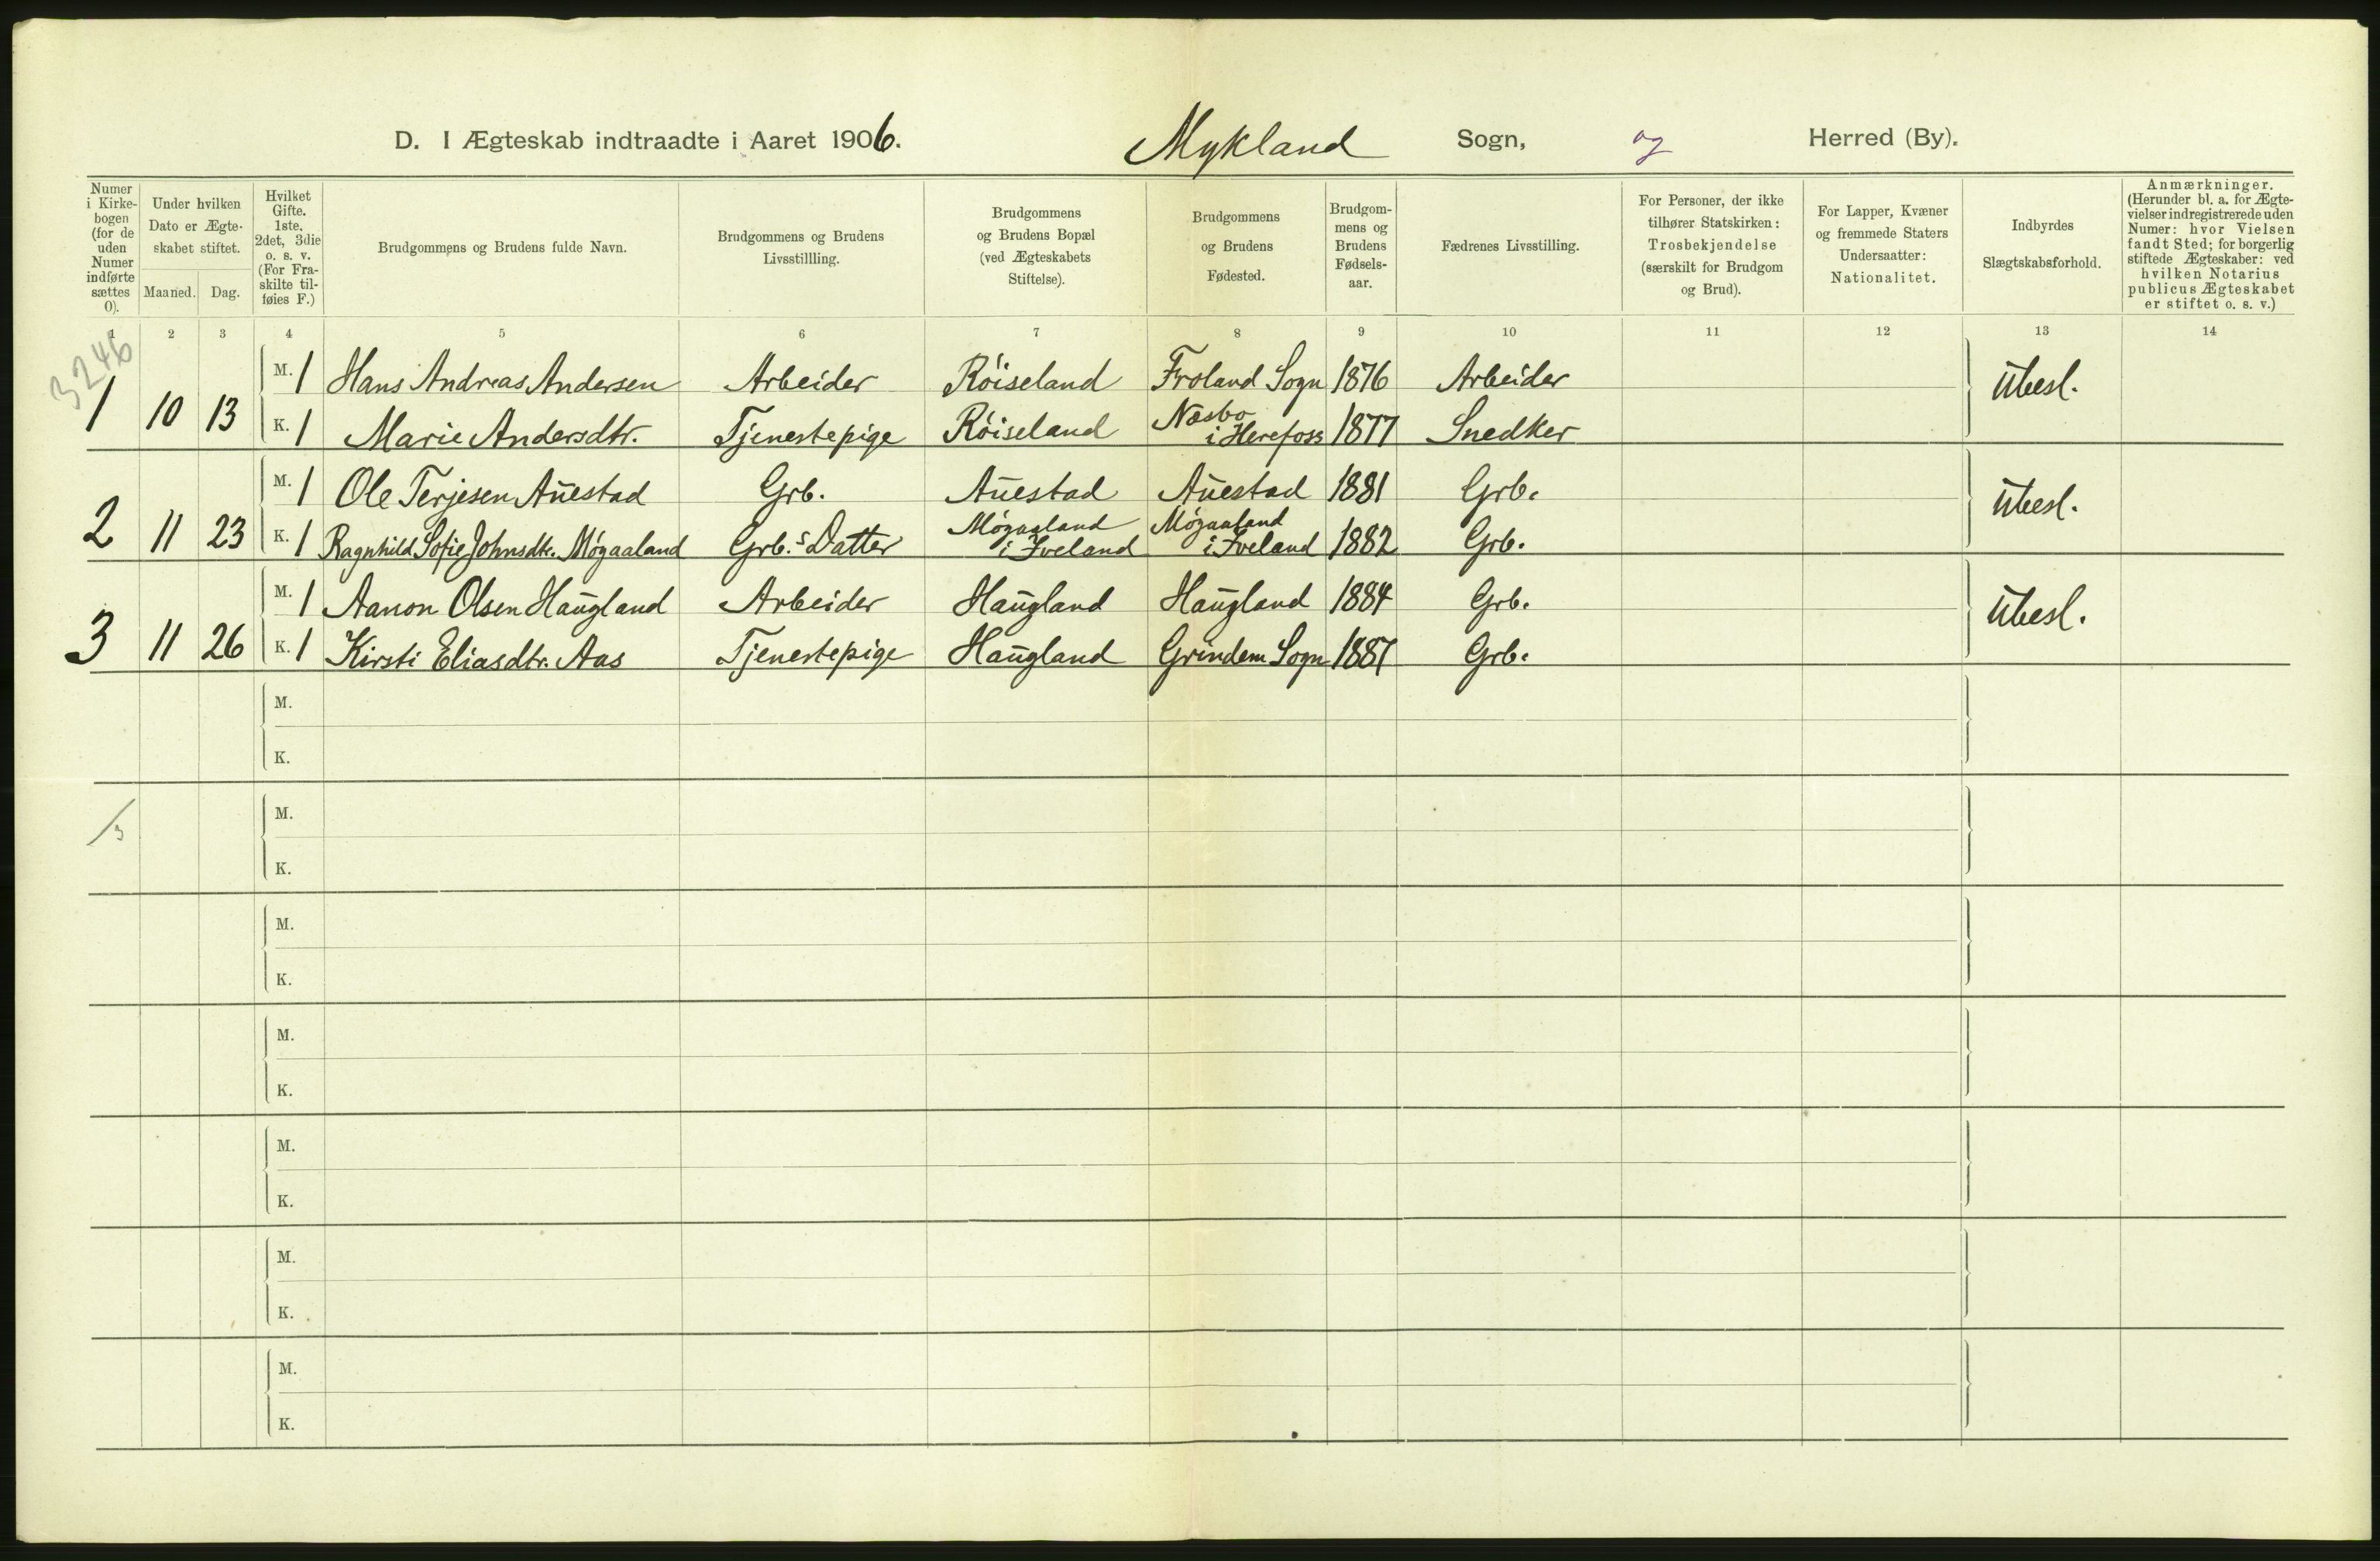 D. I Ægteskab indtraadte i Aaret 1906. Mykland Sogn, og Herred (By).
Numer i Kirkebogen (for de uden Numer indførte sættes 0).
Under hvilken Dato er Ægteskabet stiftet.
Maaned. Dag.
Hvilket Gifte. 1ste, 2det, 3die o. s. v. (For Fraskilte tilføies F.)
Brudgommens og Brudens fulde Navn.
Brudgommens og Brudens Livsstillling.
Brudgommens og Brudens Bopæl (ved Ægteskabets Stiftelse).
Brudgommens og Brudens Fødested.
Brudgommens og Brudens Fødselsaar.
Fædrenes Livsstilling.
For Personer, der ikke tilhører Statskirken: Trosbekjendelse (særskilt for Brudgom og Brud).
For Lapper, Kvæner og fremmede Staters Undersaatter: Nationalitet.
Indbyrdes Slægtskabsforhold.
Anmærkninger. (Herunder bl. a. for Ægtevielser indregistrerede uden Numer: hvor Vielsen fandt Sted; for borgerlig stiftede Ægteskaber: ved hvilken Notarius publicus Ægteskabet er stiftet o. s. v.)
1 2 3 4 5 6 7 8 9 10 11 12 13 14
3246
M. 1 Hans Andreas Andersen Arbeider Röiseland Froland Sogn 1876 Arbeider Ubesl.
1 10 13 K. 1 Marie Andersdtr. Tjenestepige Röiseland Næsbo i Herefoss 1877 Snedker
M. 1 Ole Terjesen Auestad Grb. Auestad Auestad 1881 Grb. Ubesl.
2 11 23 K. 1 Ragnhild Sofie Johnsdtr. Møgaaland Grb.s Datter Møgaaland i Iveland Møgaaland i Iveland 1882 Grb.
M. 1 Aanon Olsen Haugland Arbeider Haugland Haugland 1884 Grb. Ubesl.
3 11 26 K. 1 Kirsti Eliasdtr. Aas Tjenestepige Haugland Grindem Sogn 1887 Grb.
M.
K.
/3
M.
K.
M.
K.
M.
K.
M.
K.
M.
K.
M.
K.